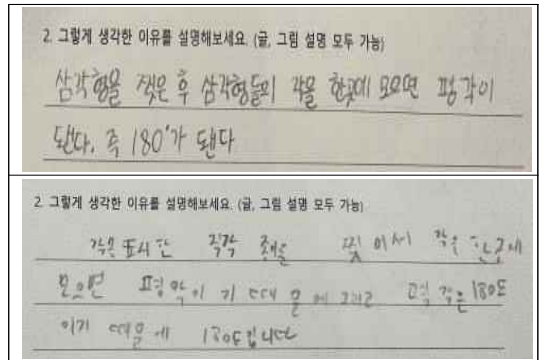 2. 그렇게 생각한 이유를 설명해보세요. (글, 그림 설명 모두 가능)
삼각형을 찢은 후 삼각형들의 각을 한곳에 모으면 평각이
된다. 즉 180°가 된다
2. 그렇게 생각한 이유를 설명해보세요. (글, 그림 설명 모두 가능)
각을 표시한 각 찢어서 각을 한곳에
모으면 평각이기 때문에 그리고 평각은 180도
이기 때문에 180도입니다